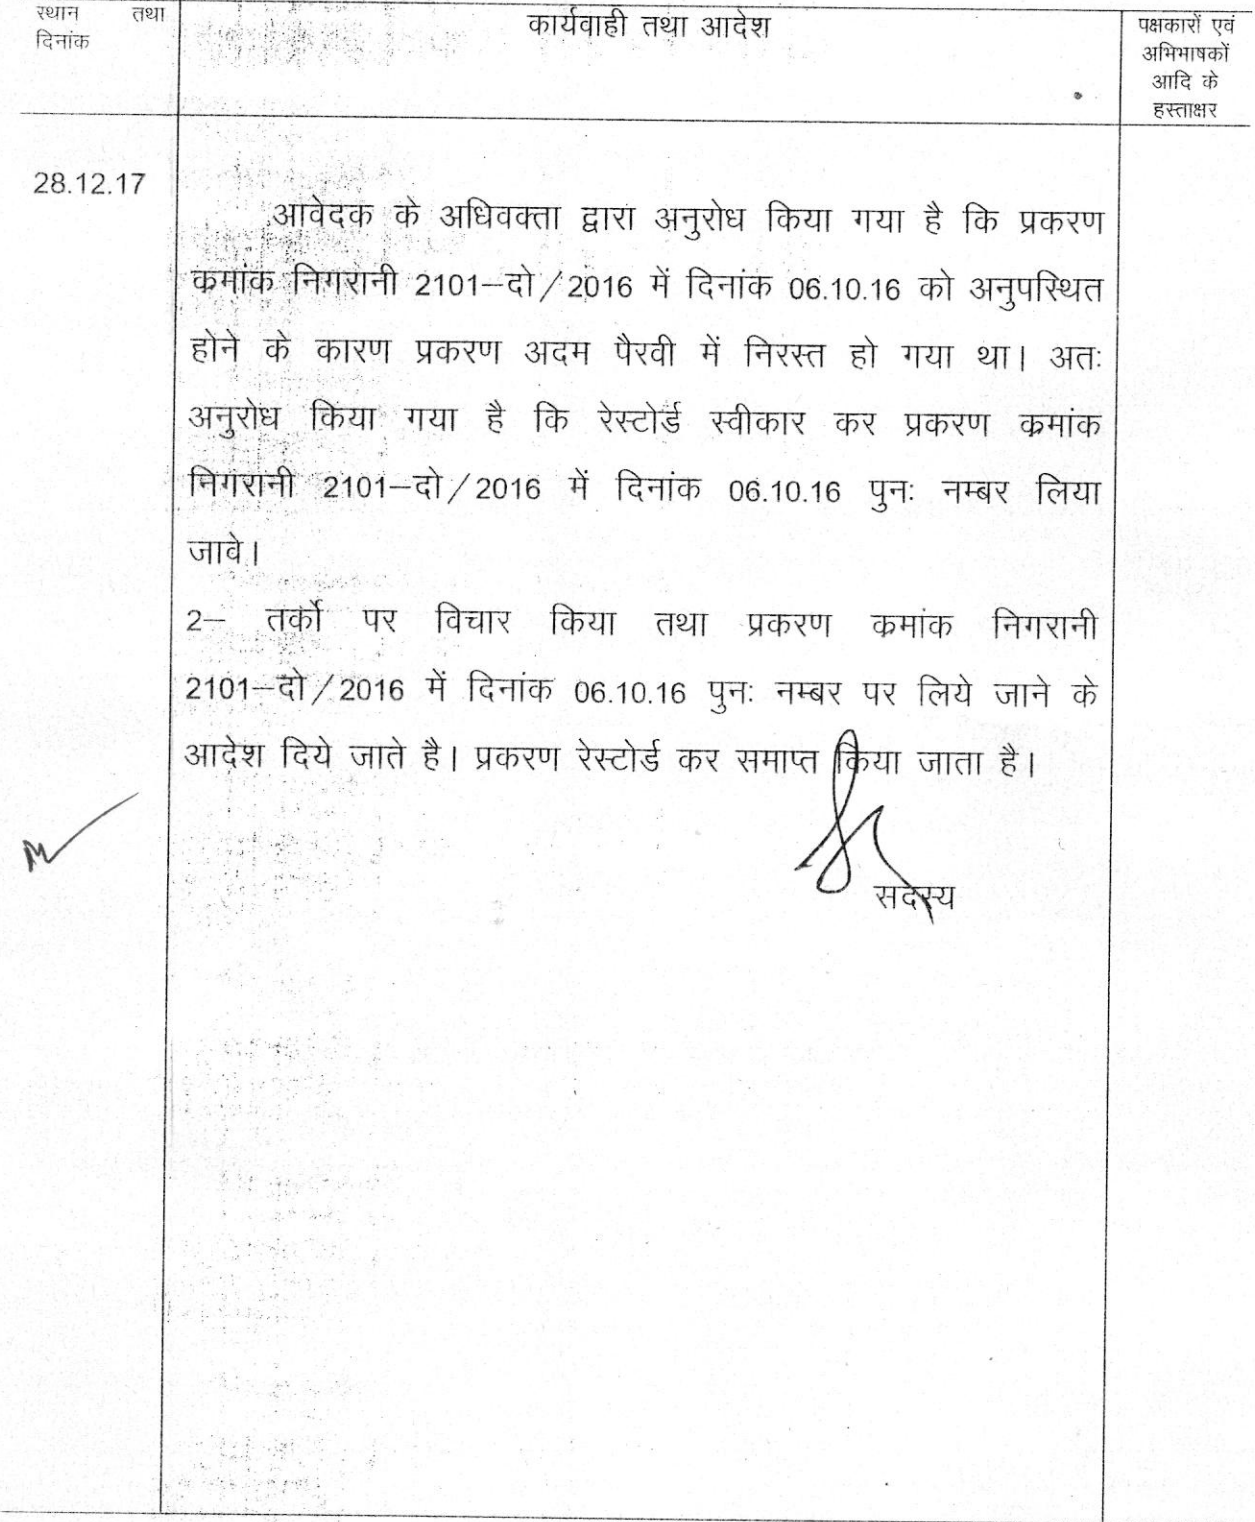 स्थान तथा
दिनांक
कार्यवाही तथा आदेश
पक्षकारों एवं
अभिभाषकों
आदि के
हस्ताक्षर
28.12.17
आवेदक के अधिवक्ता द्वारा अनुरोध किया गया है कि प्रकरण
कमांक निगरानी 2101–दो/2016 में दिनांक 06.10.16 को अनुपस्थित
होने के कारण प्रकरण अदम पैरवी में निरस्त हो गया था। अतः
अनुरोध किया गया है कि रेस्टोर्ड स्वीकार कर प्रकरण कमांक
निगरानी 2101–दो/2016 में दिनांक 06.10.16 पुनः नम्बर लिया
जावे।
2– तर्को पर विचार किया तथा प्रकरण कमांक निगरानी
2101–दो/2016 में दिनांक 06.10.16 पुनः नम्बर पर लिये जाने के
आदेश दिये जाते है। प्रकरण रेस्टोर्ड कर समाप्त किया जाता है।
सदस्य